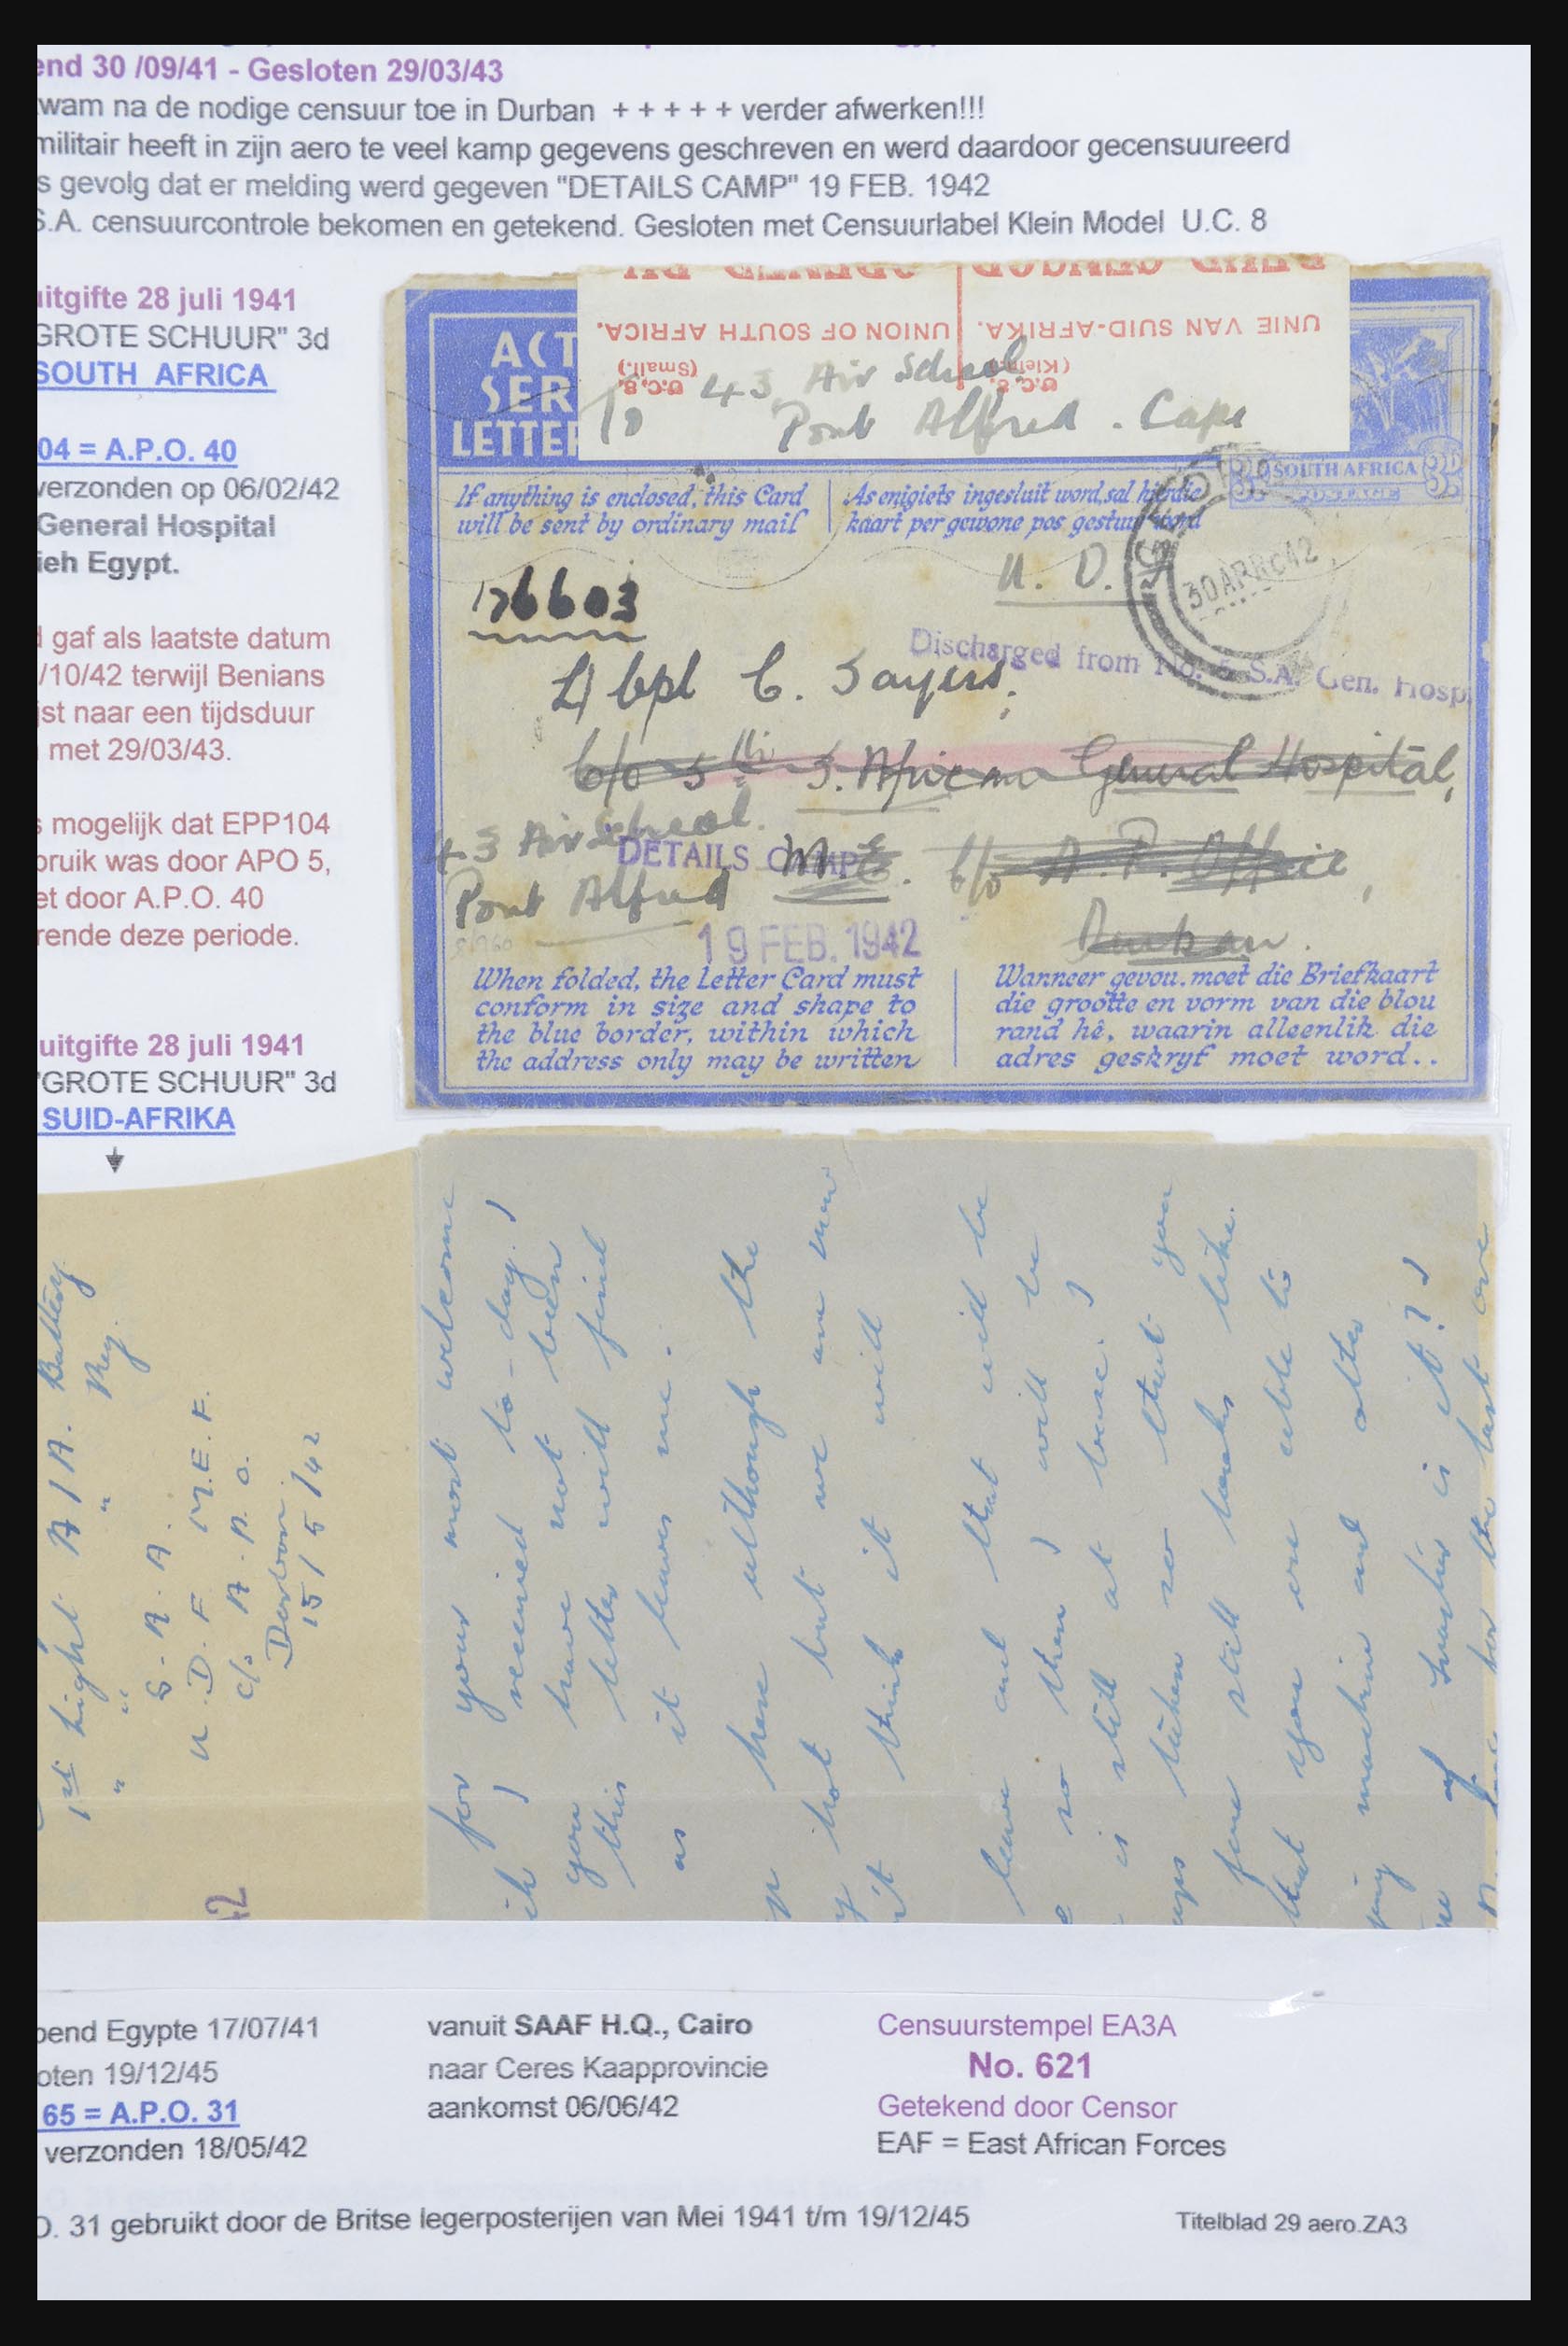 end 30 /09/41 - Gesloten 29/03/43
wam na de nodige censuur toe in Durban + + + + + verder afwerken!!!
militair heeft in zijn aero te veel kamp gegevens geschreven en werd daardoor gecensuureerd
s gevolg dat er melding werd gegeven "DETAILS CAMP" 19 FEB. 1942
S.A. censuurcontrole bekomen en getekend. Gesloten met Censuurlabel Klein Model U.C. 8
uitgifte 28 juli 1941
GROTE SCHUUR" 3d
SOUTH AFRICA
04 = A.P.O. 40
verzonden op 06/02/42
General Hospital
ieh Egypt.
d gaf als laatste datum
/10/42 terwijl Benians
jst naar een tijdsduur
met 29/03/43.
s mogelijk dat EPP104
bruik was door APO 5,
et door A.P.O. 40
rende deze periode.
uitgifte 28 juli 1941
"GROTE SCHUUR" 3d
SUID-AFRIKA
UNION OF SOUTH AFRICA.
UNIE VAN SUID-AFRIKA.
U.C.8.
(Small.)
U.C.8.
(Klein.)
ACT
SER
LETTE
To 43 Air School
Port Alfred. Cape
3D SOUTH AFRICA 3D
POSTAGE
If anything is enclosed, this Card
will be sent by ordinary mail
As enigiets ingesluit word, sal hierdie
kaart per gewone pos gestuur word
U. D.
30 APR 42
126603
Discharged from No. 5 S.A. Gen. Hosp.
L/Cpl C. Sayers,
C/o 5th S. African General Hospital,
43 Air School.
Port Alfred
DETAILS CAMP
M.E. C/o A. P. Office,
Durban.
19 FEB. 1942
When folded, the Letter Card must
conform in size and shape to
the blue border, within which
the address only may be written
Wanneer gevou, moet die Briefkaart
die grootte en vorm van die blou
rand hê, waarin alleenlik die
adres geskryf moet word..
1st Light A/A. Battery.
" " " Reg.
S. A. A.
U. D. F M.E.F.
c/o A.P.O.
Durban.
15/5/42
for your most welcome
received to-day. I
you have not been
this letter will find
as it leaves me.
here although the
hot but we are now
't think it will
leave and that will be
so then I will be
is still at base. I
taken so that you
fine still looks like.
that you are able to
machine and other
of is it? I
for the last
42
pend Egypte 17/07/41
oten 19/12/45
65 = A.P.O. 31
verzonden 18/05/42
vanuit SAAF H.Q., Cairo
naar Ceres Kaapprovincie
aankomst 06/06/42
Censuurstempel EA3A
No. 621
Getekend door Censor
EAF = East African Forces
O. 31 gebruikt door de Britse legerposterijen van Mei 1941 t/m 19/12/45
Titelblad 29 aero.ZA3